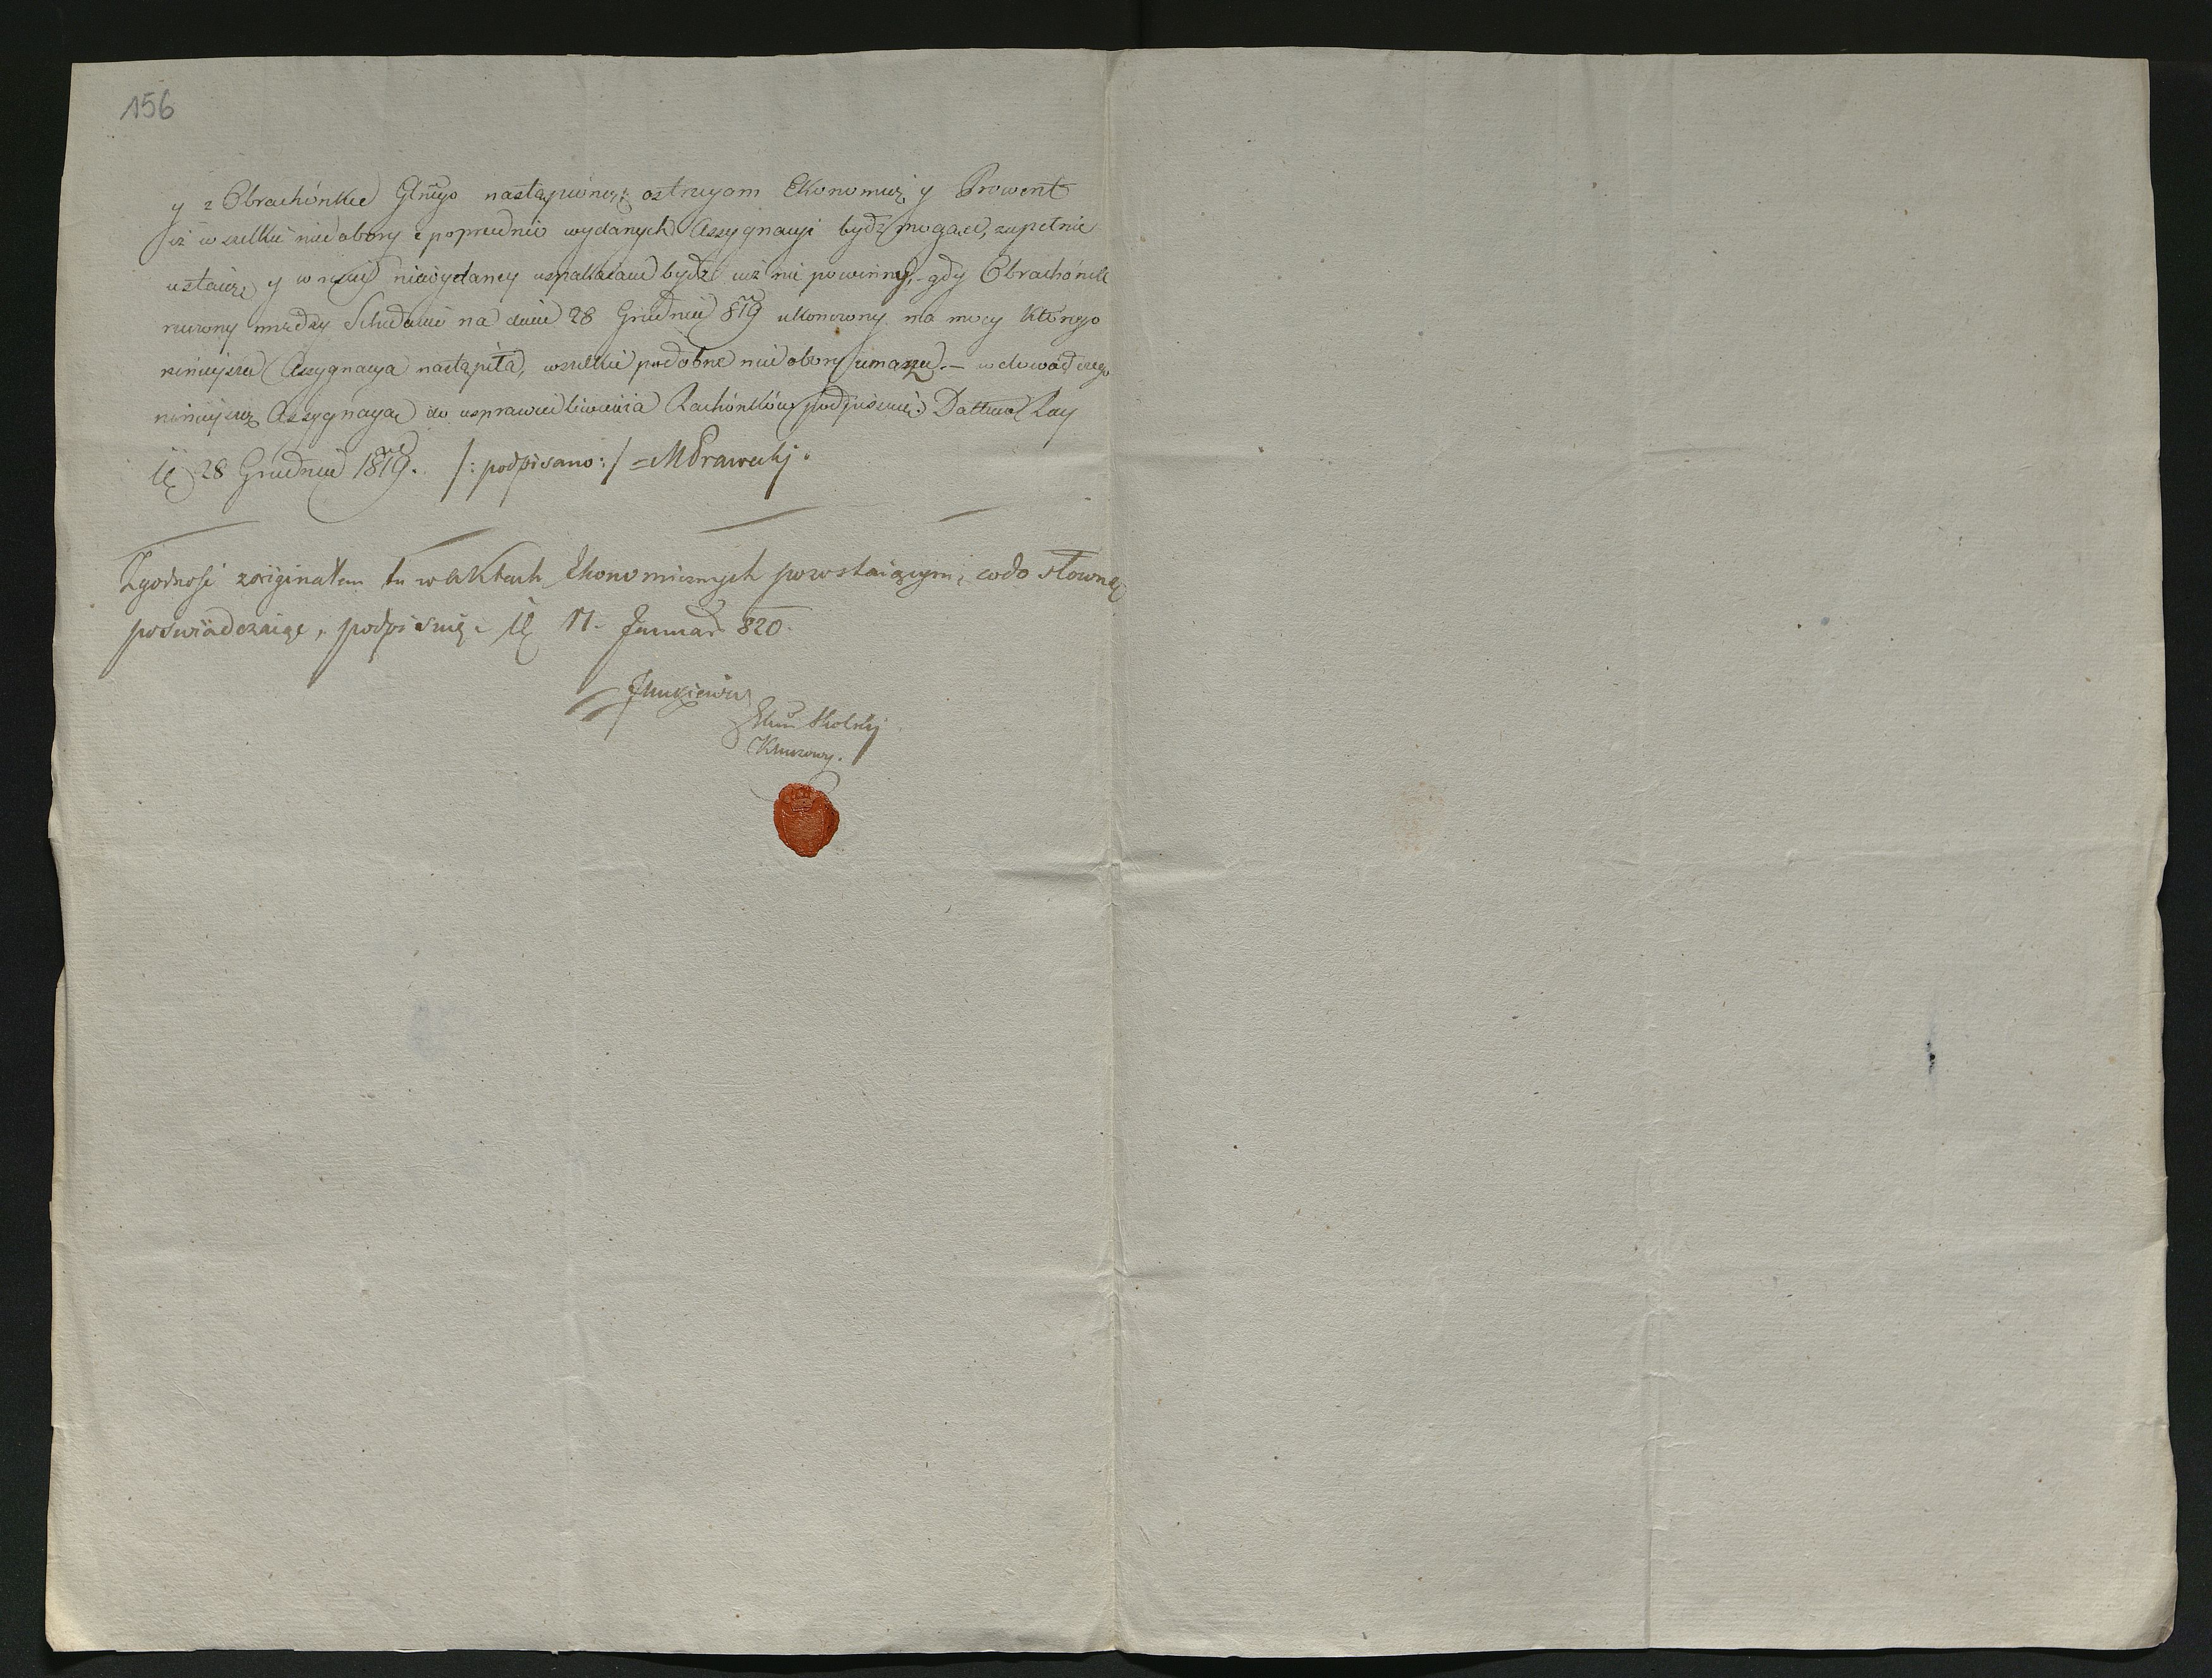 156
y z Obrachónku Głnego nastąpioney; ostrzegam Ekonomię y Prowent
iż wszelkie niedobory z poprzednio wydanych Assygnacyi bydź mogące, zupełnie
ustaią y w niewydaney uspakaiane bydź iuż nie powinny, gdy Obrachónek
roczny między Schedami na dniu 28 Grudnia 819 ukończony na mocy którego
ninieysza Assygnacya nastąpiła, wszelkie podobne niedobory umarza. – w dowód czego
ninieyszą Assygnacyą do usprawiedliwienia Rachónków podpisuię. Dattum
28 Grudnia 1819. /: podpisano :/ = M Prawecki.
Zgodność z originałem tu w Aktach Ekonomicznych pozostaiącym, co do słowa
poświadczaiąc, podpisuię. 11. Januar 820.